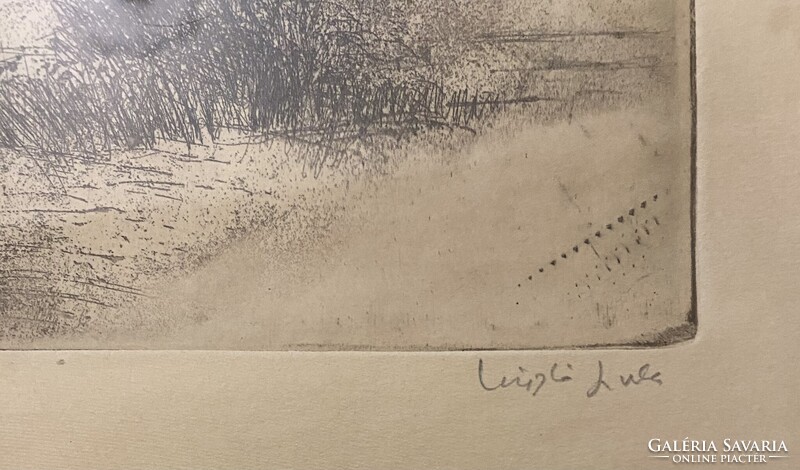 László Gula
GALÉRIA SAVARIA
ONLINE PIACTER